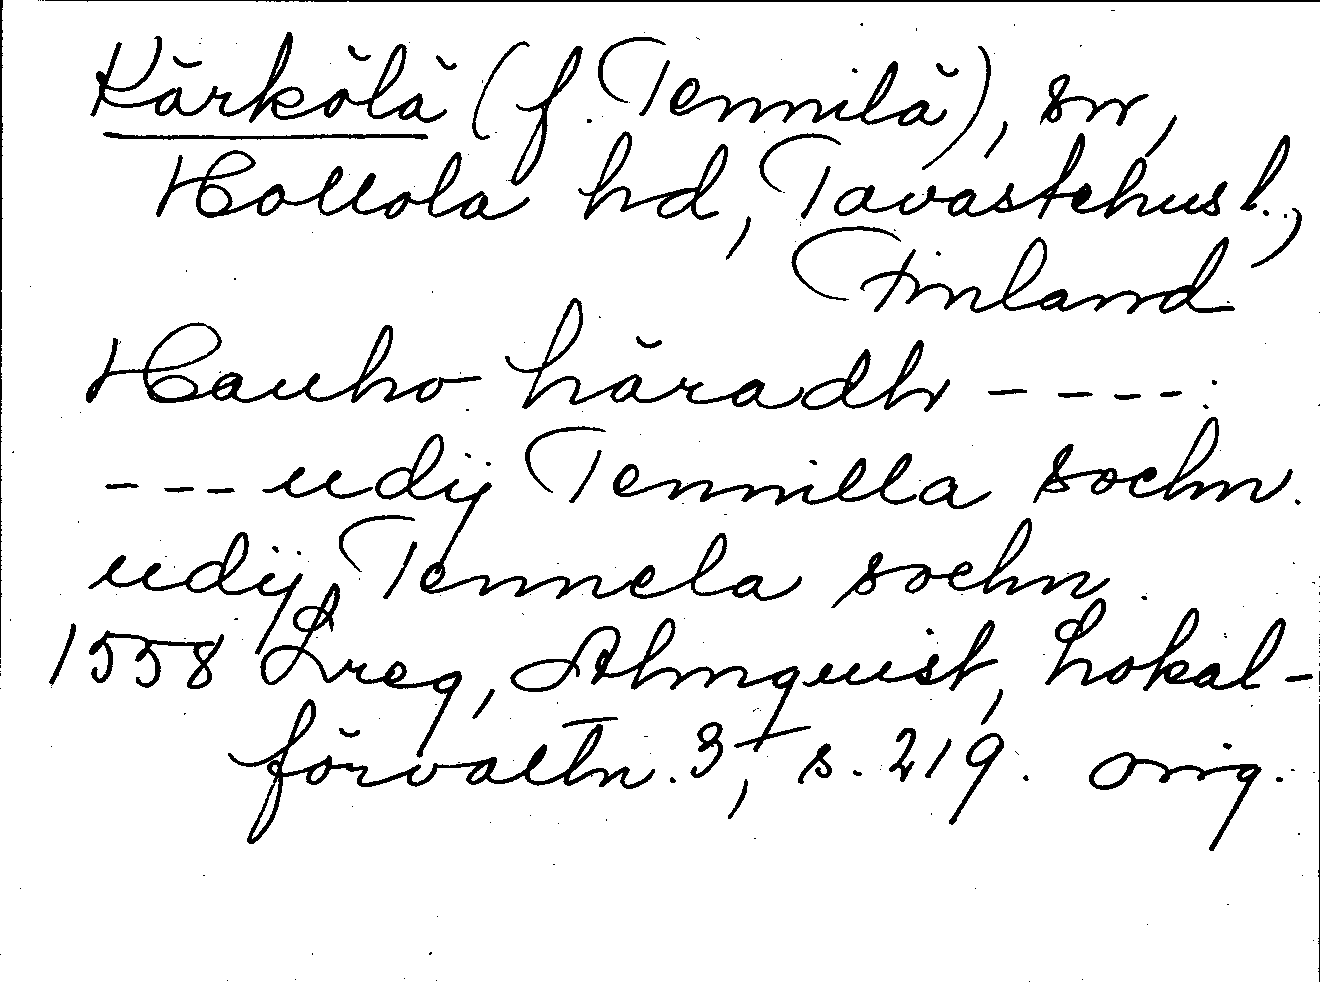 Kärkölä (f. Tennilä), sn,
Hollola hd, Tavastehus l.,
Finland
Hauho häradh ----:
--- udij Tennilla sochn.
udij Tennela sochn.
1558 Lreg, Almquist, Lokal-
förvaltn. 3, s. 219. orig.